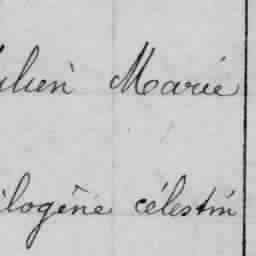 ulien Marie
ilogène célestin